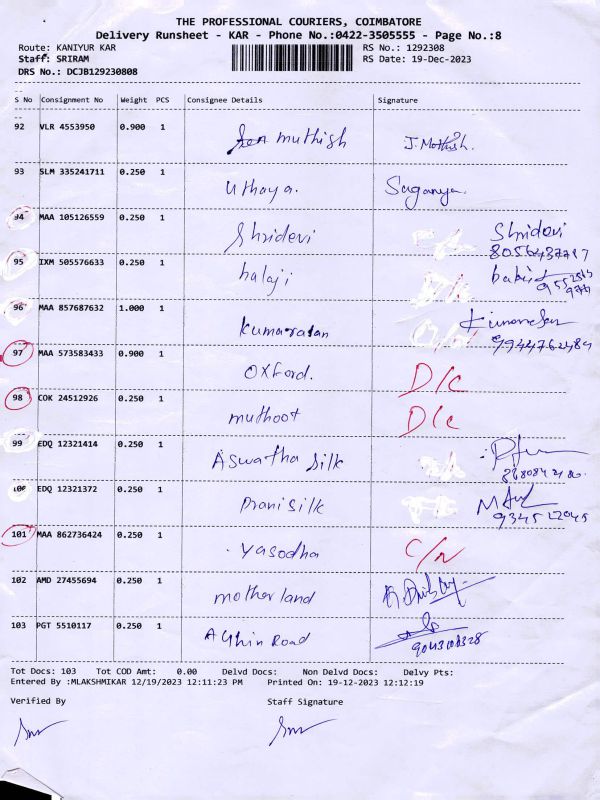 THE PROFESSIONAL COURIERS, COIMBATORE
Delivery Runsheet - KAR - Phone No.:0422-3505555 - Page No.:8
Route: KANIYUR KAR RS No.: 1292308
Staff: SRIRAM RS Date: 19-Dec-2023
DRS No.: DCJB129230808
S No Consignment No Weight PCS Consignee Details Signature
92 VLR 4553950 0.900 1 muthish J. Mothish.
93 SLM 335241711 0.250 1 Uthaya. Suganya.
94 MAA 105126559 0.250 1 Shridevi Shridevi
95 IXM 505576633 0.250 1 balaji
96 MAA 857687632 1.000 1 kumaratan
9944762489
97 MAA 573583433 0.900 1 OXford. D/C
98 COK 24512926 0.250 1 muthoot D/C
99 EDQ 12321414 0.250 1 Aswatha Silk
100 EDQ 12321372 0.250 1 Prani Silk
101 MAA 862736424 0.250 1 Yasodha C/N
102 AMD 27455694 0.250 1 motherland
103 PGT 5510117 0.250 1 Road
Tot Docs: 103 Tot COD Amt: 0.00 Delvd Docs: Non Delvd Docs: Delvy Pts:
Entered By :MLAKSHMIKAR 12/19/2023 12:11:23 PM Printed On: 19-12-2023 12:12:19
Verified By Staff Signature